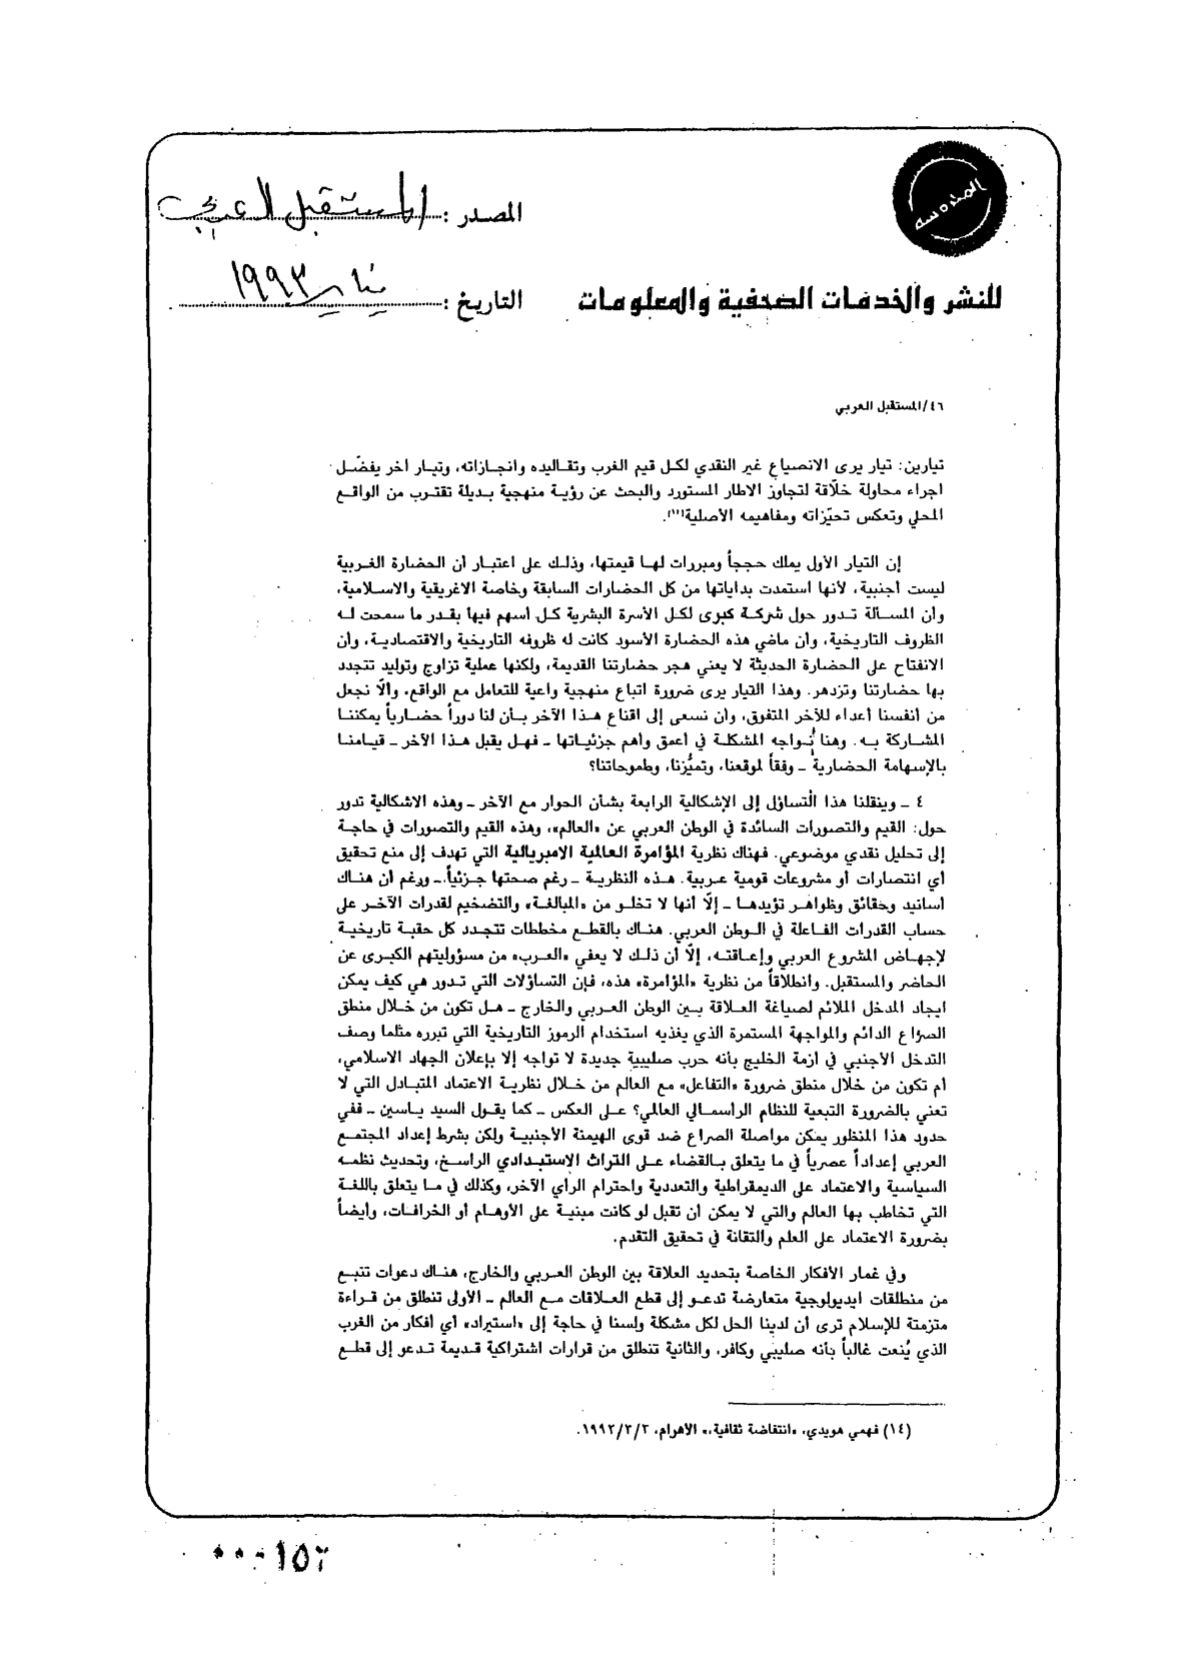 المصدر : المستقبل العربي
للنشر والخدمات الصحفية والمعلومات
التاريخ : يناير ١٩٩٣
٤٦/المستقبل العربي
تيارين: تيار يرى الانصياع غير النقدي لكل قيم الغرب وتقاليده وانجازاته، وتيار آخر يفضّل
اجراء محاولة خلّاقة لتجاوز الاطار المستورد والبحث عن رؤية منهجية بديلة تقترب من الواقع
المحلي وتعكس تحيّزاته ومفاهيمه الأصلية.
إن التيار الأول يملك حججاً ومبررات لها قيمتها، وذلك على اعتبار أن الحضارة الغربية
ليست أجنبية، لأنها استمدت بداياتها من كل الحضارات السابقة وخاصة الاغريقية والاسلامية،
وأن المسألة تدور حول شركة كبرى لكل الأسرة البشرية كل أسهم فيها بقدر ما سمحت له
الظروف التاريخية، وأن ماضي هذه الحضارة الأسود كانت له ظروفه التاريخية والاقتصادية، وأن
الانفتاح على الحضارة الحديثة لا يعني هجر حضارتنا القديمة، ولكنها عملية تزاوج وتوليد تتجدد
بها حضارتنا وتزدهر. وهذا التيار يرى ضرورة اتباع منهجية واعية للتعامل مع الواقع، وألّا نجعل
من أنفسنا أعداء للآخر المتفوق، وأن نسعى إلى اقناع هذا الآخر بأن لنا دوراً حضارياً يمكننا
المشاركة به. وهنا نُواجه المشكلة في أعمق وأهم جزئياتها ـ فهل يقبل هذا الآخر ـ قيامنا
بالإسهامة الحضارية ـ وفقاً لموقعنا، وتميُّزنا، وطموحاتنا؟
٤ ـ وينقلنا هذا التساؤل إلى الإشكالية الرابعة بشأن الحوار مع الآخر ـ وهذه الاشكالية تدور
حول: القيم والتصورات السائدة في الوطن العربي عن «العالم»، وهذه القيم والتصورات في حاجة
إلى تحليل نقدي موضوعي. فهناك نظرية المؤامرة العالمية الامبريالية التي تهدف إلى منع تحقيق
أي انتصارات أو مشروعات قومية عربية. هذه النظرية ـ رغم صحتها جزئياً ـ ورغم أن هناك
أسانيد وحقائق وظواهر تؤيدها ـ إلّا أنها لا تخلو من «المبالغة» والتضخيم لقدرات الآخر على
حساب القدرات الفاعلة في الوطن العربي. هناك بالقطع مخططات تتجدد كل حقبة تاريخية
لإجهاض المشروع العربي وإعاقته، إلّا أن ذلك لا يعفي «العرب» من مسؤوليتهم الكبرى عن
الحاضر والمستقبل. وانطلاقاً من نظرية «المؤامرة» هذه، فإن التساؤلات التي تدور هي كيف يمكن
ايجاد المدخل الملائم لصياغة العلاقة بين الوطن العربي والخارج ـ هل تكون من خلال منطق
الصراع الدائم والمواجهة المستمرة الذي يغذيه استخدام الرموز التاريخية التي تبرره مثلما وصف
التدخل الأجنبي في أزمة الخليج بأنه حرب صليبية جديدة لا تواجه إلا بإعلان الجهاد الاسلامي،
أم تكون من خلال منطق ضرورة «التفاعل» مع العالم من خلال نظرية الاعتماد المتبادل التي لا
تعني بالضرورة التبعية للنظام الرأسمالي العالمي؟ على العكس ـ كما يقول السيد ياسين ـ ففي
حدود هذا المنظور يمكن مواصلة الصراع ضد قوى الهيمنة الأجنبية ولكن بشرط إعداد المجتمع
العربي إعداداً عصرياً في ما يتعلق بالقضاء على التراث الاستبدادي الراسخ، وتحديث نظمه
السياسية والاعتماد على الديمقراطية والتعددية واحترام الرأي الآخر، وكذلك في ما يتعلق باللغة
التي تخاطب بها العالم والتي لا يمكن أن تقبل لو كانت مبنية على الأوهام أو الخرافات، وأيضاً
بضرورة الاعتماد على العلم والتقانة في تحقيق التقدم.
وفي غمار الأفكار الخاصة بتحديد العلاقة بين الوطن العربي والخارج، هناك دعوات تتبع
من منطلقات ايديولوجية متعارضة تدعو إلى قطع العلاقات مع العالم ـ الأولى تنطلق من قراءة
متزمتة للإسلام ترى أن لدينا الحل لكل مشكلة ولسنا في حاجة إلى «استيراد» أي أفكار من الغرب
الذي يُنعت غالباً بأنه صليبي وكافر. والثانية تنطلق من قرارات اشتراكية قديمة تدعو إلى قطع
(١٤) فهمي هويدي، «انتفاضة ثقافية،» الأهرام، ١٩٩٢/٣/٣.